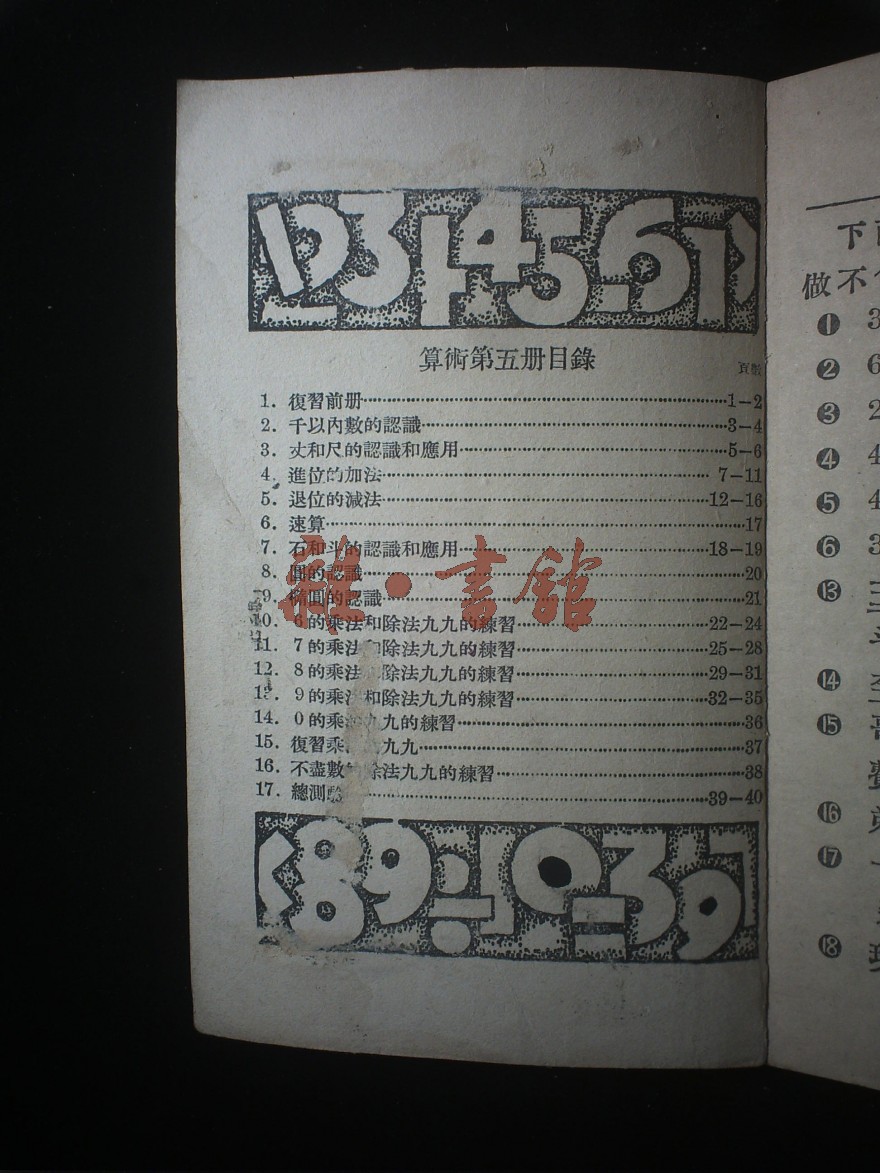 算術第五册目錄
頁數
1. 復習前册 1-2
2. 千以內數的認識 3-4
3. 丈和尺的認識和應用 5-6
4. 進位的加法 7-11
5. 退位的減法 12-16
6. 速算 17
7. 石和斗的認識和應用 18-19
8. 圓的認識 20
9. 橢圓的認識 21
10. 6的乘法和除法九九的練習 22-24
11. 7的乘法和除法九九的練習 25-28
12. 8的乘法和除法九九的練習 29-31
13. 9的乘法和除法九九的練習 32-35
14. 0的乘法九九的練習 36
15. 復習乘 九九 37
16. 不盡數 除法九九的練習 38
17. 總測驗 39-40
龍·書館
下
做不
❶ 3
❷ 6
❸ 2
❹ 4
❺ 4
❻ 3
⓭
⓮
⓯
⓰
⓱
⓲